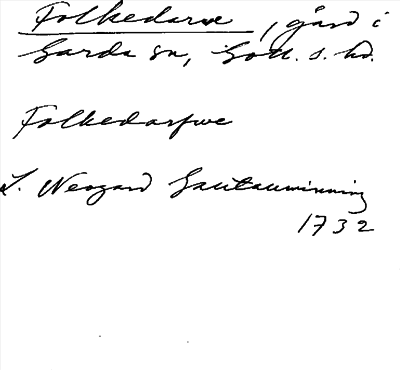 Folkedarve, gård i
Garda sn, Gotl. s. hd.
Folkedarfwe
L. Neogard Gautauminning
1732